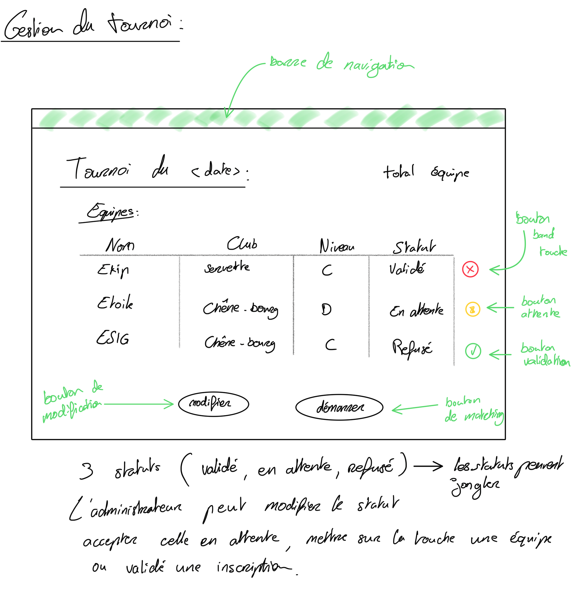 Gestion du tournoi :
barre de navigation
Tournoi du <date> :
total équipe
Equipes :
Nom Club Niveau Statut
servette C Validé
Etoile Chêne-bourg D En attente
ESIG Chêne-bourg C Refusé
bouton
touche
bouton
attente
bouton
validation
bouton de
modification
modifier
démarrer
bouton
de matching
3 statuts ( validé, en attente, refusé ) → les statuts peuvent
jongler
L'administrateur peut modifier le statut
accepter celle en attente, mettre sur la touche une équipe
ou validé une inscription.